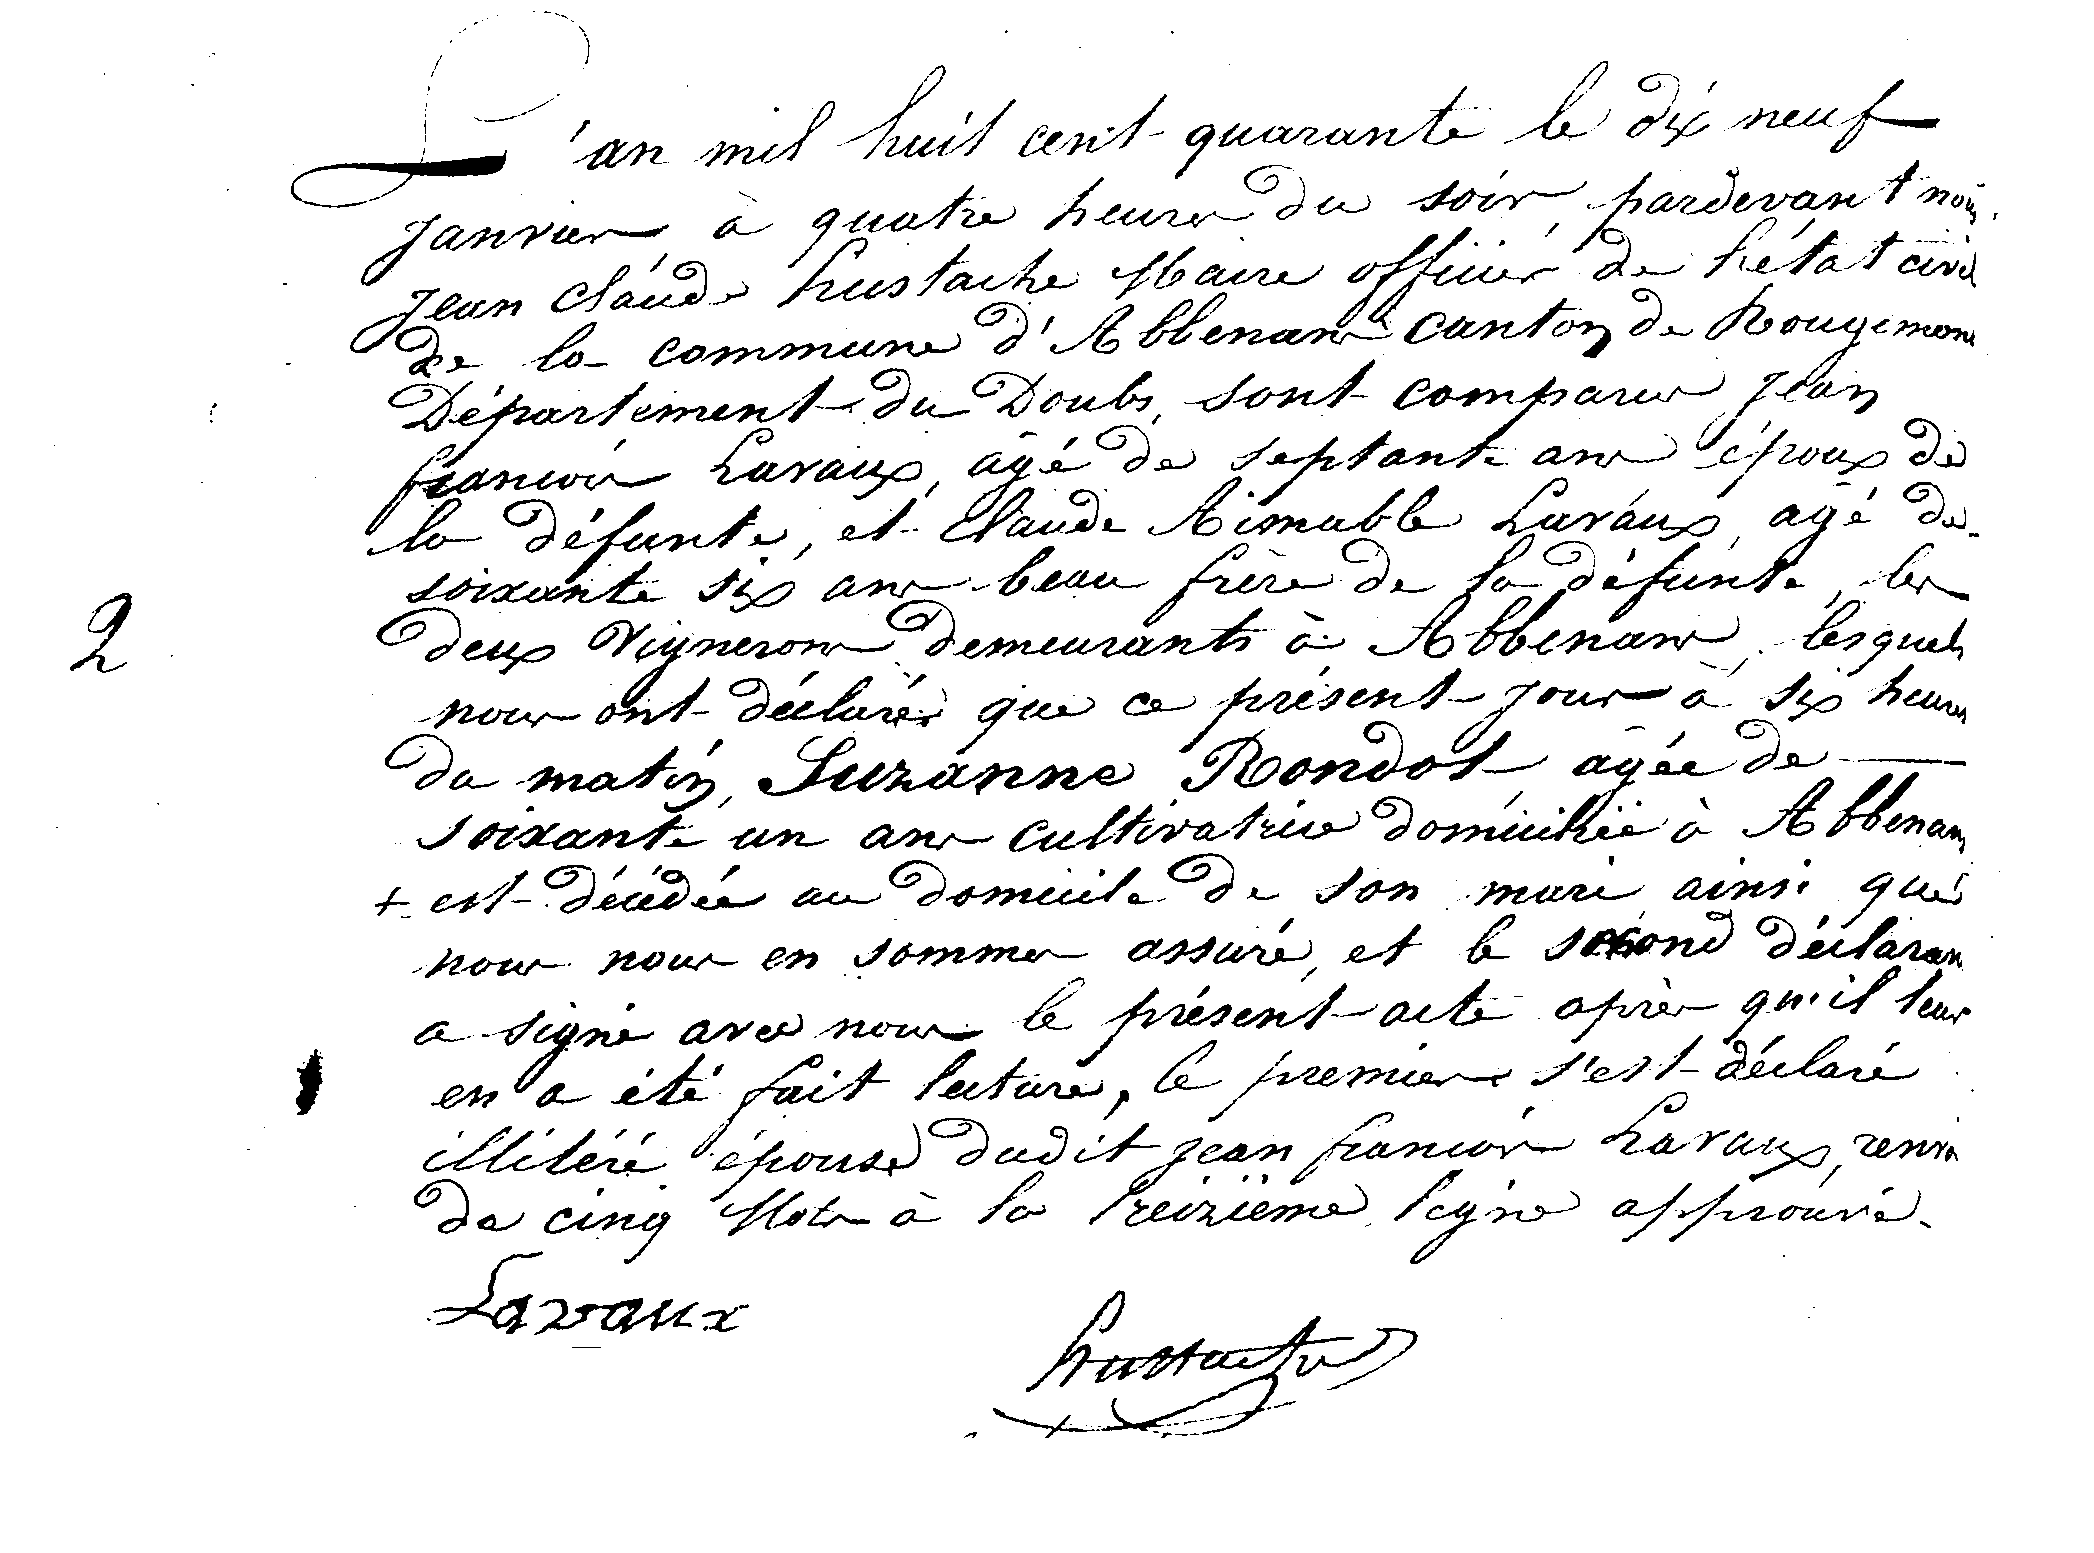 L'an mil huit cent quarante le dix neuf
janvier, à quatre heures du soir, pardevant nous,
jean claude hustache Maire officier de l'état civil
de la commune d'Abbenans canton de Rougemont
Département du Doubs, sont comparus jean
francois Lavaux, âgé de septante ans époux de
la défunte, et claude Aimable Lavaux, agé de
soixante six ans beau frère de la défunte, les
2
deux vignerons demeurants à Abbenans, lesquels
nous ont déclarés que ce présent jour à six heures
du matin, Suzanne Rondot, agée de
soixante un ans cultivatrice domiciliée à Abbenans
+ est décédée au domicile de son mari ainsi que
nous nous en sommes assuré, et le second déclarant
a signé avec nous le présent acte après qu'il leur
en a été fait lecture, le premier s'est déclaré
illitéré épouse dudit jean francois Lavaux, renvoi
de cinq Mots à la treizième ligne approuvé.
Lavaux
hustache